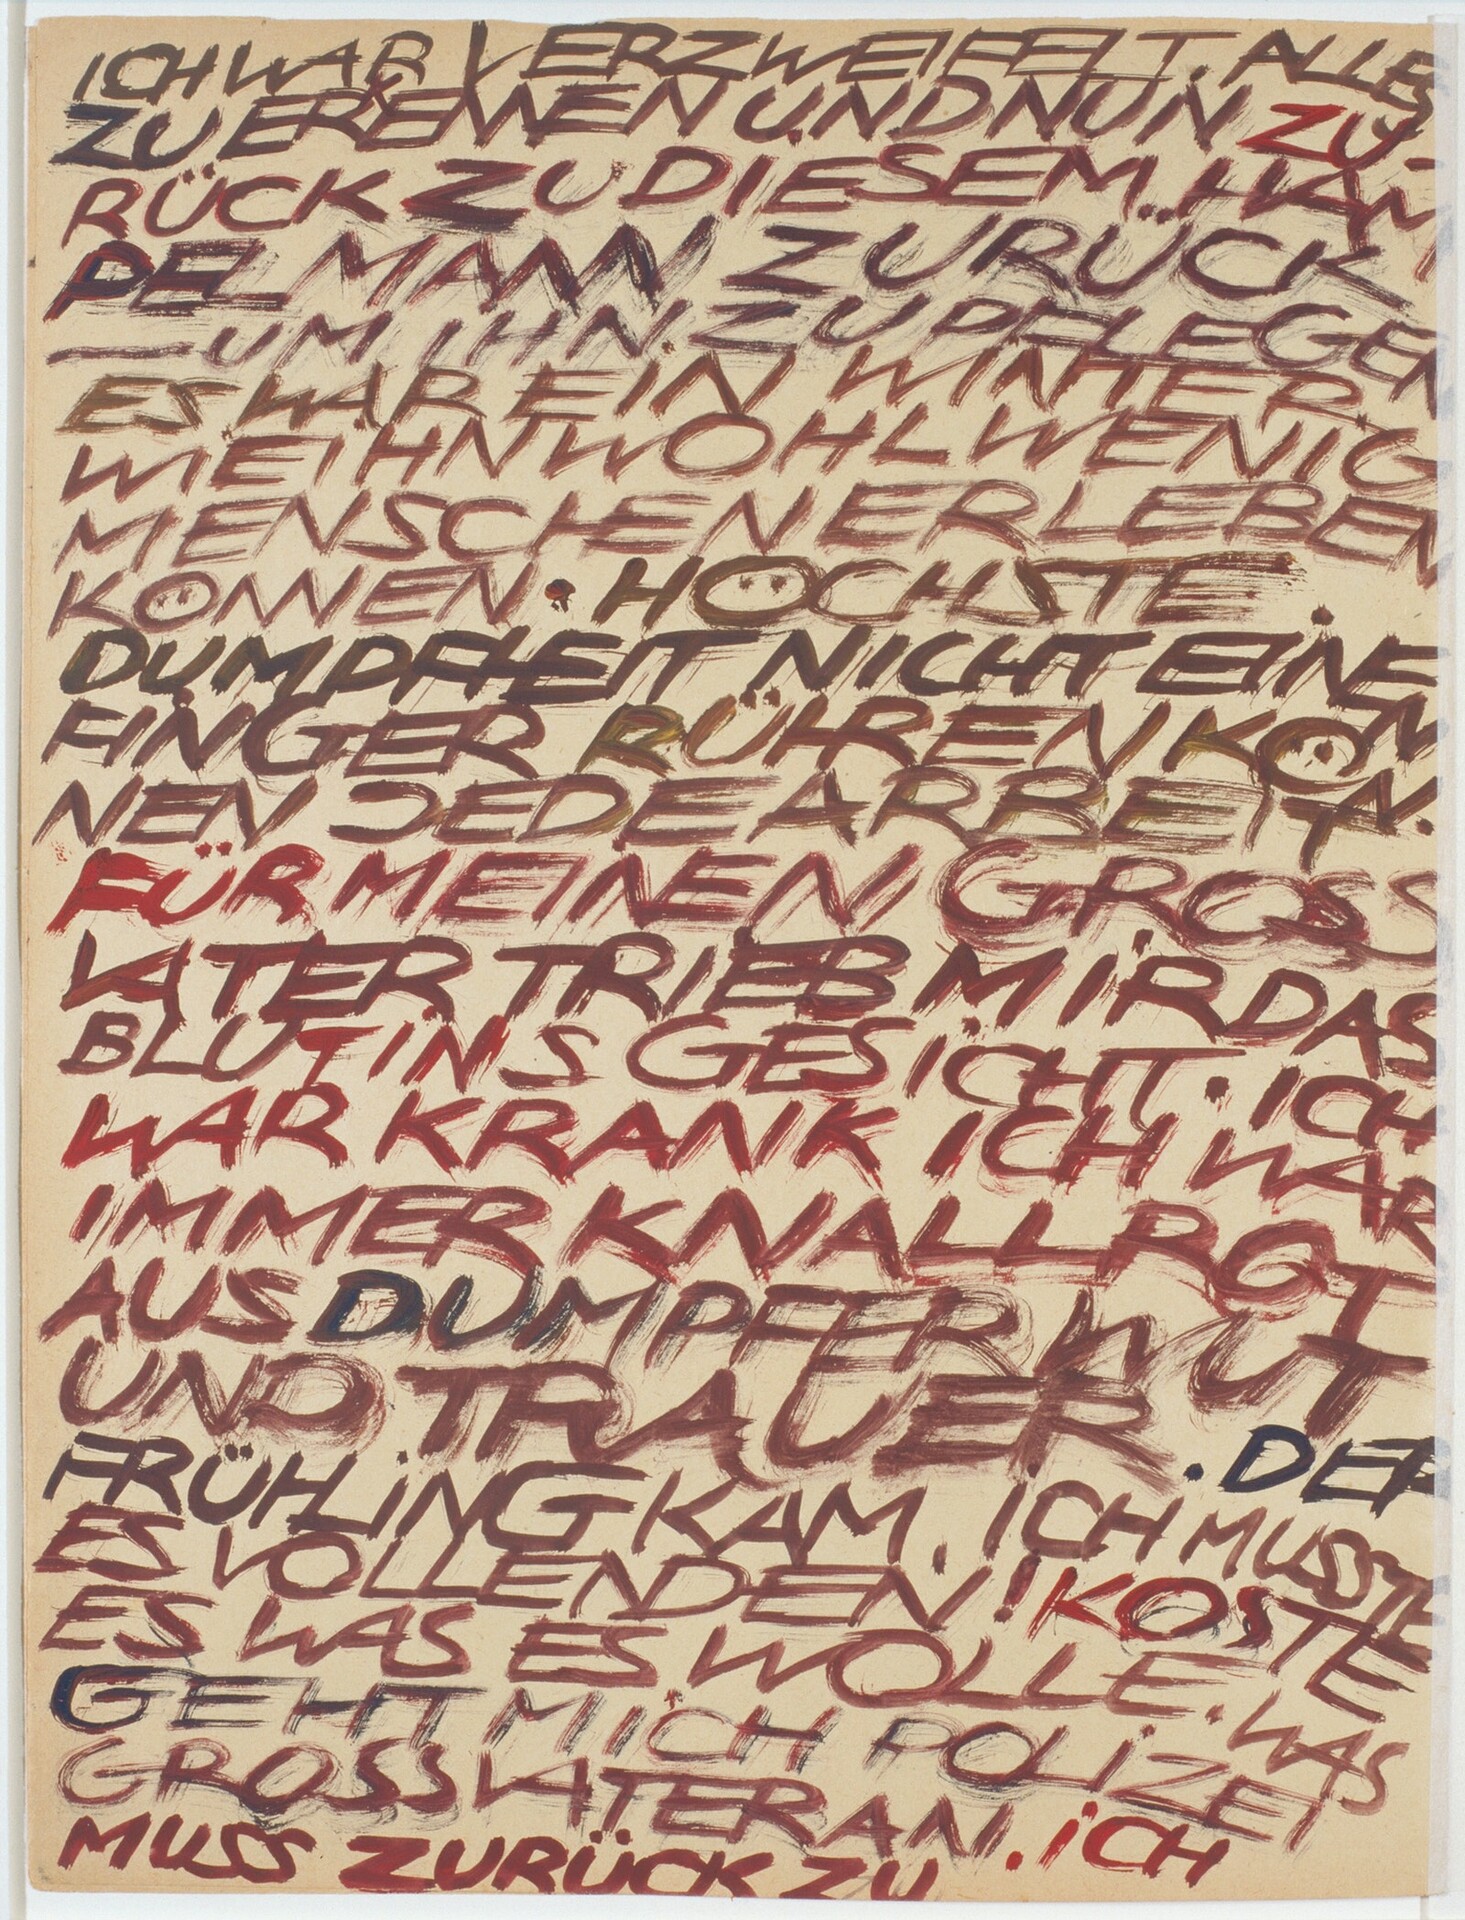 ICH WAR VERZWEIFELT. ALLES
ZU ERKENNEN UND NUN ZU-
RÜCK ZU DIESEM HAM
PELMANN ZURÜCK
— UM IHN ZU PFLEGEN
ES WAR EIN WINTER
WIE IHN WOHL WENIG
MENSCHEN ERLEBEN
KÖNNEN. HÖCHSTE
DUMPFHEIT NICHT EINEN
FINGER RÜHREN KÖN
NEN JEDE ARBEIT
FÜR MEINEN GROSS
VATER TRIEB MIR DAS
BLUT INS GESICHT. ICH
WAR KRANK ICH WAR
IMMER KNALLROT
AUS DUMPFER WUT
UND TRAUER. DER
FRÜHLING KAM. ICH MUSSTE
ES VOLLENDEN! KOSTE
ES WAS ES WOLLE. WAS
GEHT MICH POLIZEI
GROSSVATER AN. ICH
MUSS ZURÜCK ZU